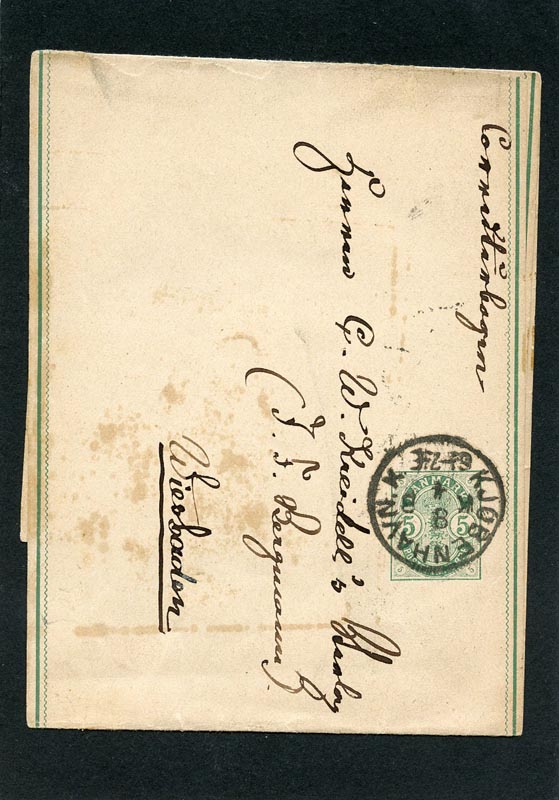 Correcturbogen
Herren C. W. Kreidel's Verlag
(J. F. Bergmann)
Wiesbaden
KJØBENHAVN. K.
DANMARK
5 5